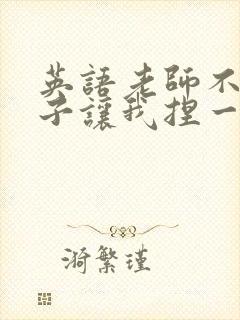 英語老師不
子讓我捏一
漪繁瑾